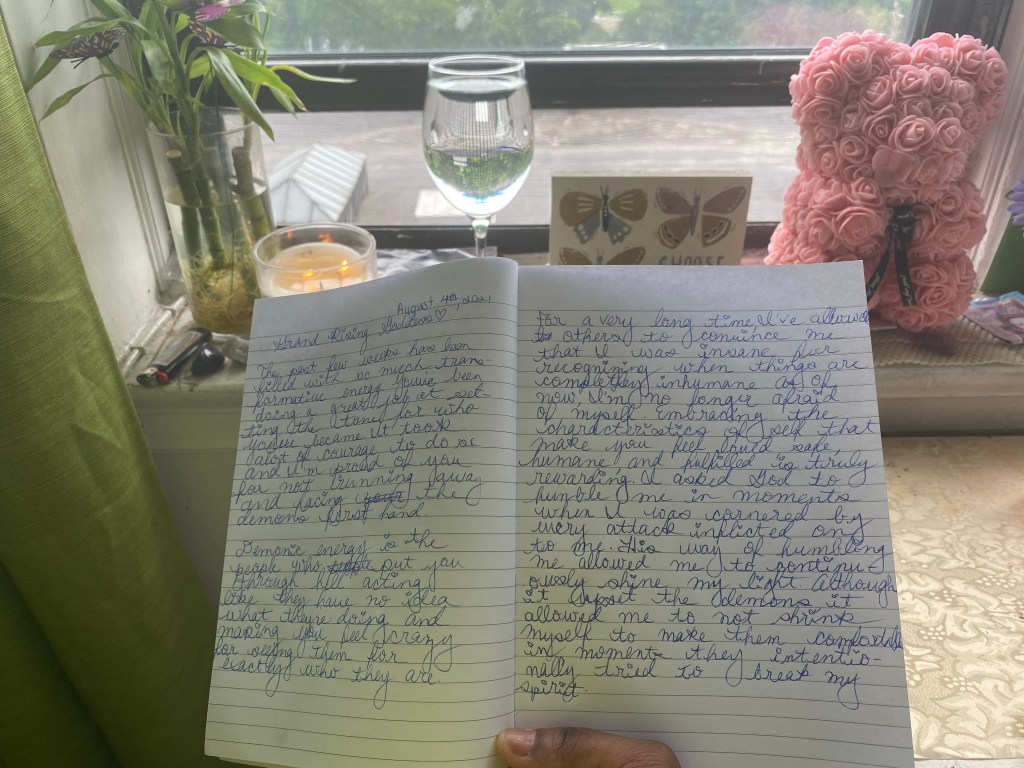 August 4th, 2021
Grand Rising Goddess ♡,
The past few weeks has been
filled with so much trans-
formative energy. You've been
doing a great job at set-
ting the tone for who
you've became. It took
alot of courage to do so
and I'm proud of you
for not running away
and facing your the
demons first hand.
Demonic energy is the
people who people put you
through hell acting
like they have no idea
what they're doing and
making you feel crazy
for seeing them for
exactly who they are.
For a very long time, I've allowed
to others to convince me
that I was insane for
recognizing when things are
completley inhumane as of
now I'm no longer afraid
of myself. Embracing the
characteristics of self that
make you feel loved, safe,
humane and fulfilled is truly
rewarding. I asked God to
humble me in moments
when I was cornered by
every attack inflicted on
to me. This way of humbling
me allowed me to continu-
ously shine my light. Although
it upset the demons it
allowed me to not shrink
myself to make them comfortable
in moments they intentio-
nally tried to break my
spirit.
CHOOSE